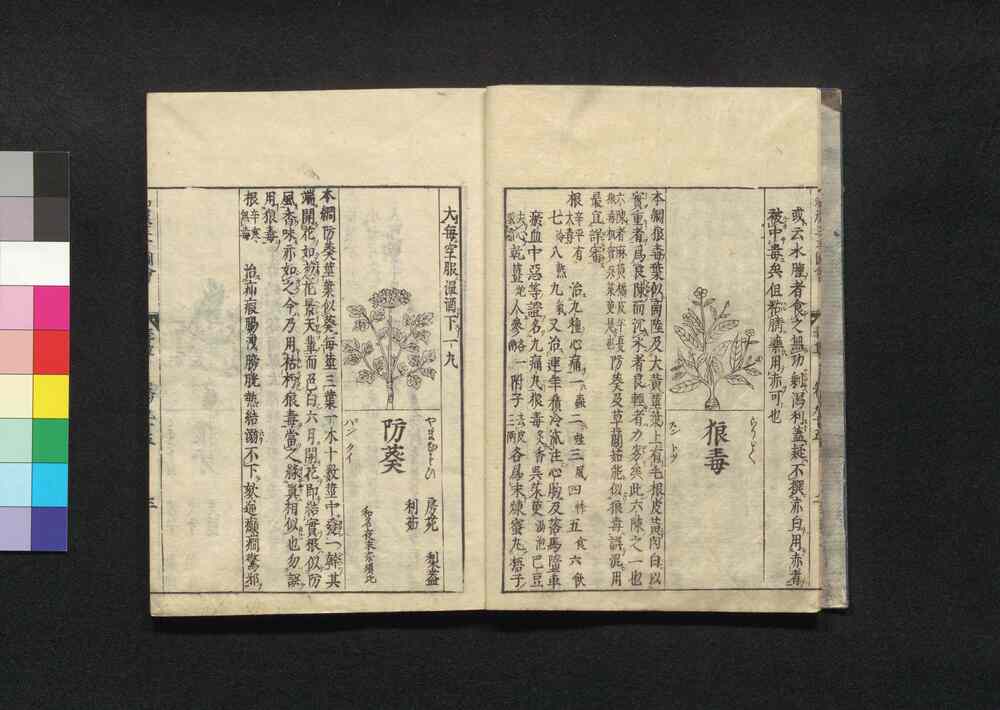 或云水腫者食之無功剰瀉利蓋誕不撰赤白用赤者
被中毒矣但粘膏藥用赤可也
らうどく
狼毒
ラン トク
本綱狼毒葉似商陸及大黄莖葉上有毛根皮黄肉白以
實重者爲良陳而沉水者良輕者力劣矣此六陳之一也
防葵及草䕡茹能似狼毒誤混用
最宜詳審
根 辛平有大毒 治九種心痛一蟲二蛀三風四悸五食六飲
七冷八熱九氣又治連年積冷流注心胸及落馬墮車
瘀血中惡等證名九痛丸狼毒炙香呉茱萸湯泡巴豆
去心乾薑炮人參各一附子去皮三兩各爲末煉蜜丸梧子
大每空服温酒下一丸
やまなすび
防葵
ハン クイ
房苑
利茹
梨蓋
本綱防葵莖葉似葵每莖三葉一本十數莖中發一幹其
端開花如葱花景天輩而色白六月開花即結實根似防
風香味亦如之今乃用枯朽狼毒當之緣真相似也勿誤
用狼毒
根 辛寒無毒 治疝瘕腸洩膀胱熱結溺不下欬逆癲癇驚邪